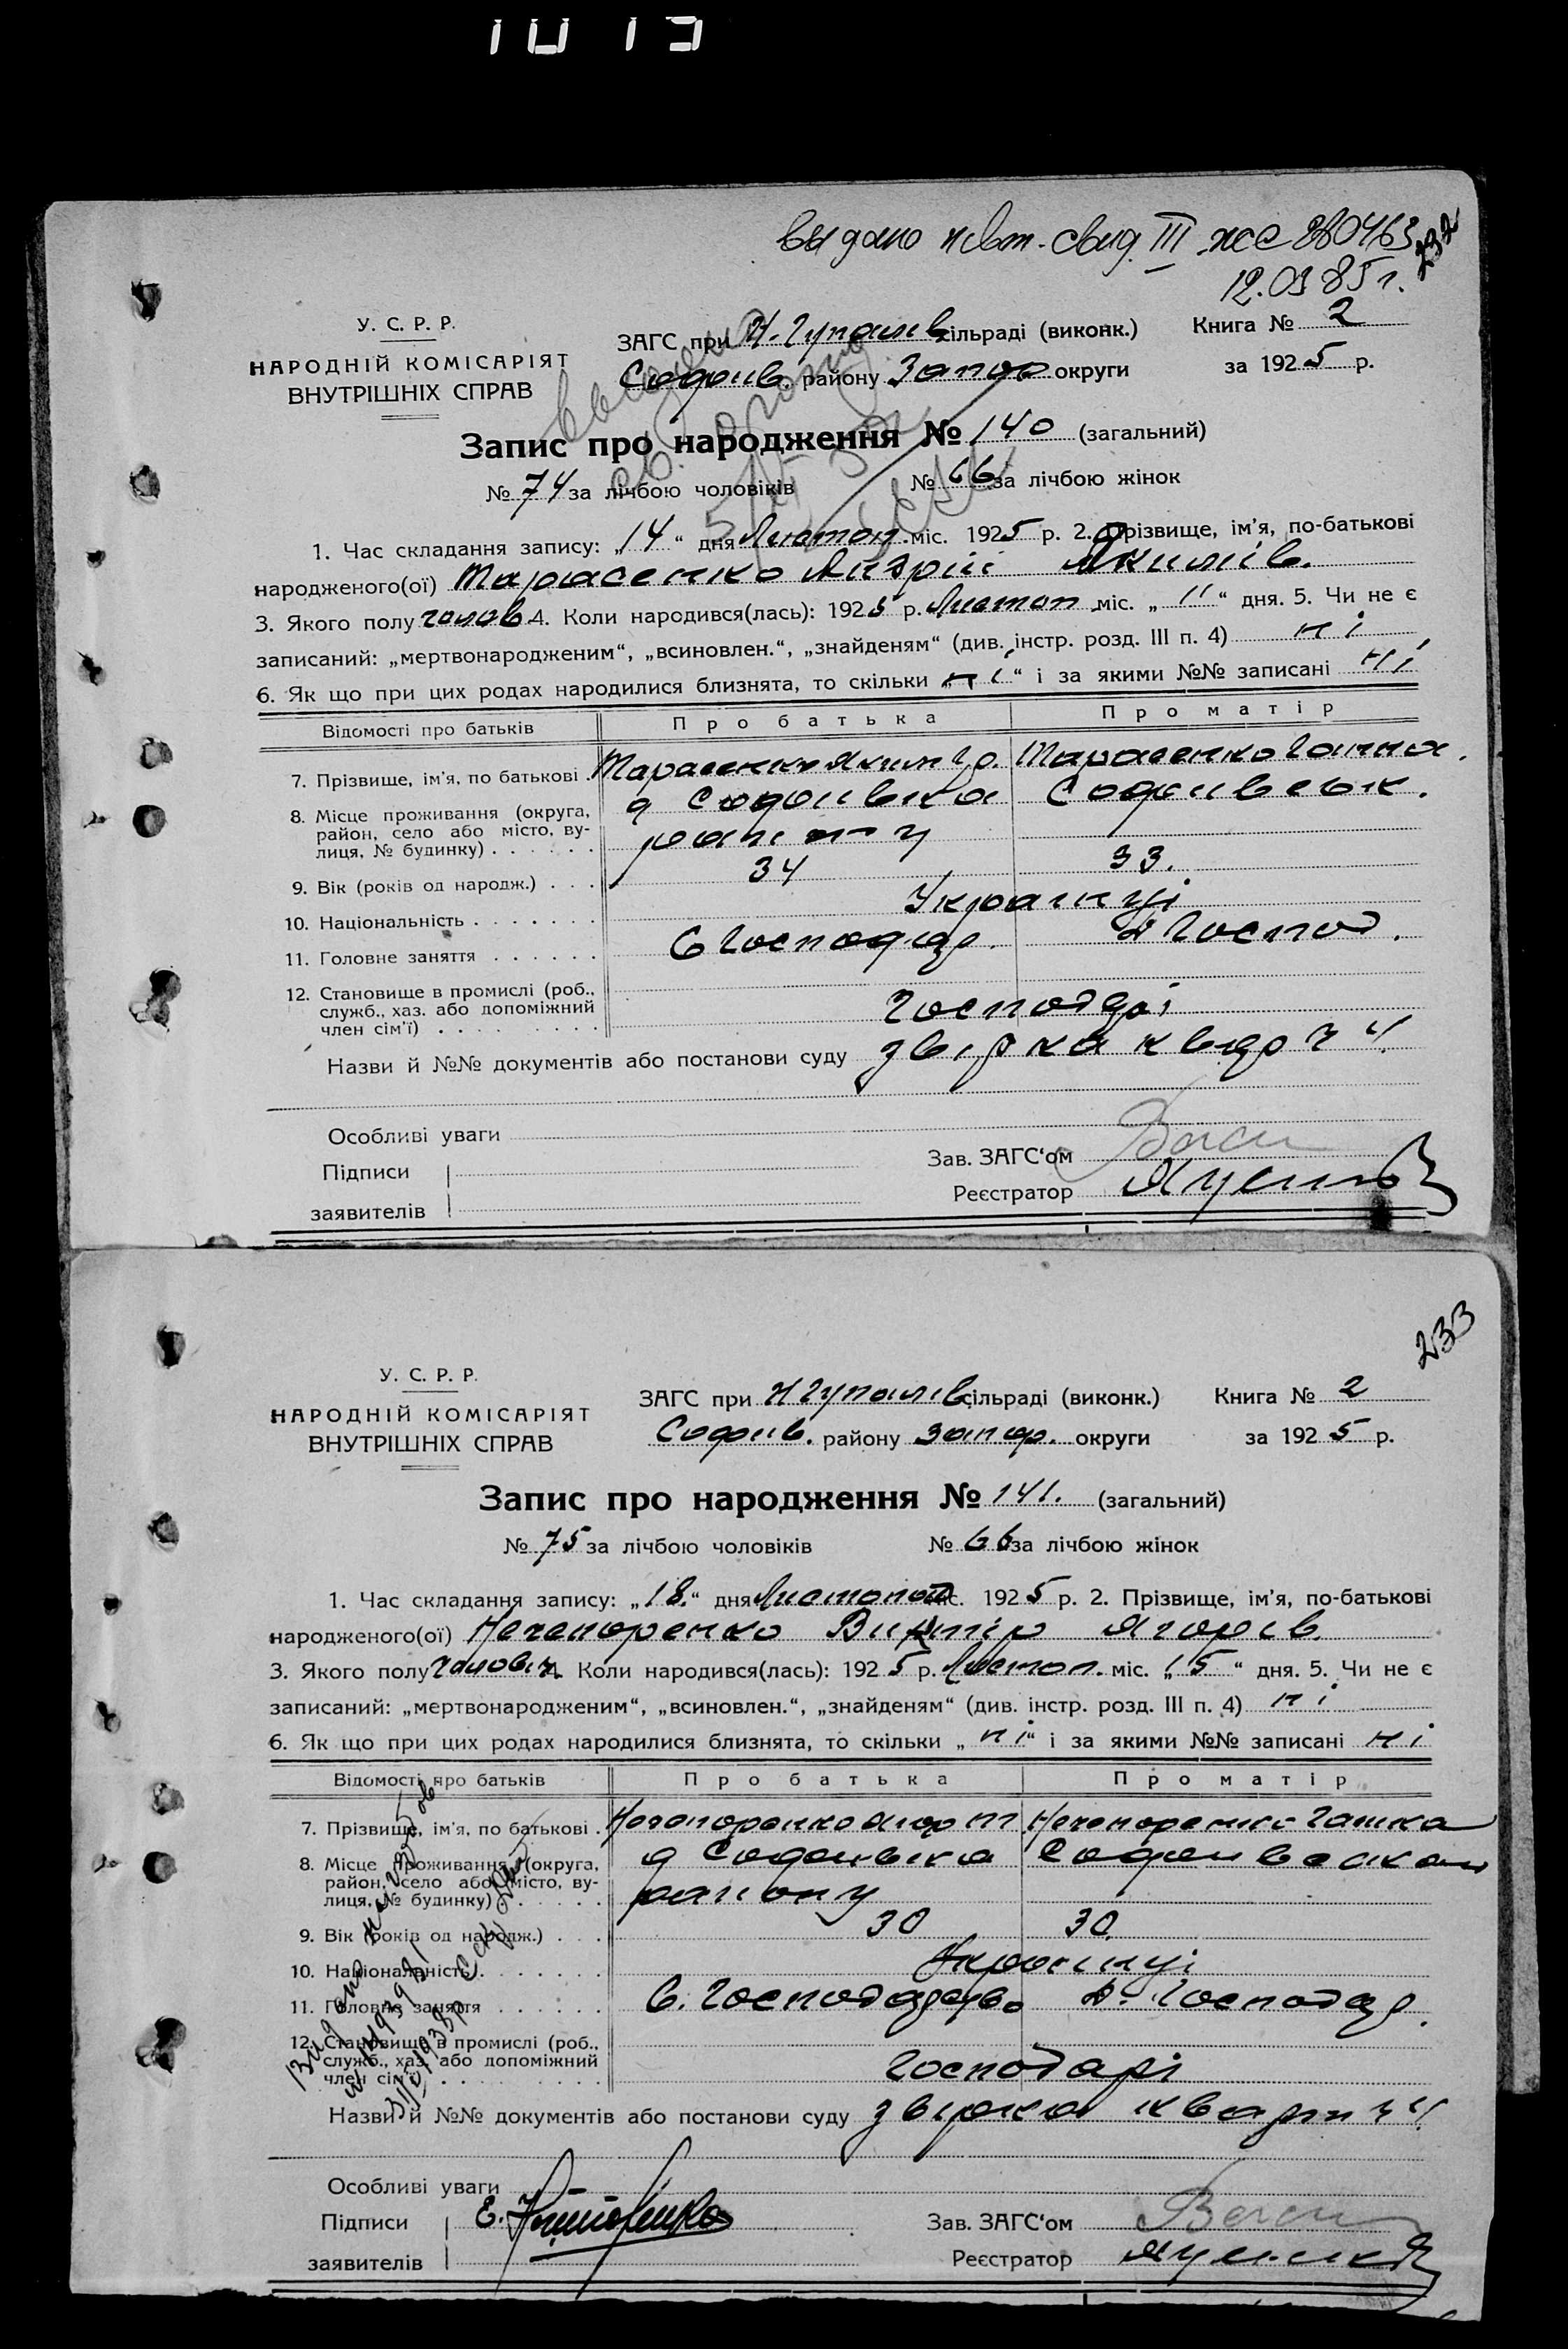 1013
выдано повт. свид. III ЖС 280463
12.03 85 г.
232
У. С. Р. Р.
НАРОДНІЙ КОМІСАРІЯТ
ВНУТРІШНІХ СПРАВ
ЗАГС при Н. Гупалів сільраді (виконк.)
Софиїв. району Запор округи
Книга № 2
за 1925 р.
Запис про народження № 140 (загальний)
№ 74 за лічбою чоловіків № 66 за лічбою жінок
1. Час складання запису: „14“ дня Листоп. міс. 1925 р. 2. Прізвище, ім’я, по-батькові
народженого(ої) Тарасенко Андрій Якимів.
3. Якого полу чолов. 4. Коли народився(лась): 1925 р. Листоп міс. „11“ дня. 5. Чи не є
записаний: „мертвонародженим“, „всиновлен.“, „знайденям“ (див. інстр. розд. III п. 4) ні
6. Як що при цих родах народилися близнята, то скільки „ні“ і за якими №№ записані ні
Відомості про батьків Про батька Про матір
7. Прізвище, ім’я, по батькові . Тарасенко Яким Тарасенко Ганна
8. Місце проживання (округа,
район, село або місто, ву-
лиця, № будинку) . . . . . .
9. Вік (років од народж.) . . . 34 33.
10. Національність . . . . . . . Українці
11. Головне заняття . . . . . . С Господар. Д Господ.
12. Становище в промислі (роб.,
служб., хаз. або допоміжний
член сім’ї) . . . . . . . . . Господарі
Назви й №№ документів або постанови суду звірка
Особливі уваги
Підписи
заявителів
Зав. ЗАГС‘ом
Реєстратор
233
У. С. Р. Р.
НАРОДНІЙ КОМІСАРІЯТ
ВНУТРІШНІХ СПРАВ
ЗАГС при Н Гупалів сільраді (виконк.)
Софиїв. району Запор. округи
Книга № 2
за 1925 р.
Запис про народження № 141. (загальний)
№ 75 за лічбою чоловіків № 66 за лічбою жінок
1. Час складання запису: „18.“ дня Листопад міс. 1925 р. 2. Прізвище, ім’я, по-батькові
народженого(ої) Нечепоренко Віктір Ягорів.
3. Якого полу чоловіч. 4. Коли народився(лась): 1925 р. Листоп. міс. „15“ дня. 5. Чи не є
записаний: „мертвонародженим“, „всиновлен.“, „знайденям“ (див. інстр. розд. III п. 4) ні
6. Як що при цих родах народилися близнята, то скільки „ні“ і за якими №№ записані ні
Відомості про батьків Про батька Про матір
7. Прізвище, ім’я, по батькові . Нечепоренко Ягор Нечепоренко
8. Місце проживання (округа,
район, село або місто, ву-
лиця, № будинку) . . . . . . району
9. Вік (років од народж.) . . . 30 30.
10. Національність . . . . . . . Українці
11. Головне заняття . . . . . . С. Господарство Д. Господар.
12. Становище в промислі (роб.,
служб., хаз. або допоміжний
член сім’ї) . . . . . . . . . Господарі
Назви й №№ документів або постанови суду звірка
Особливі уваги
Підписи
заявителів
Зав. ЗАГС‘ом
Реєстратор